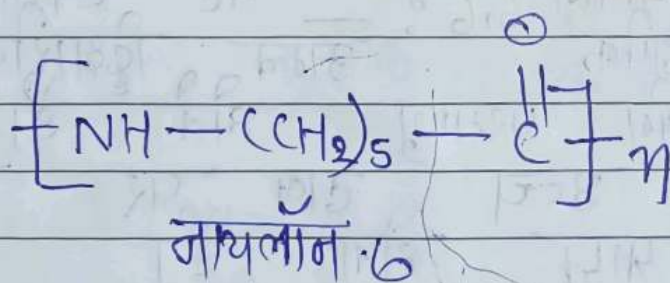 O
[NH — (CH2)5 — C]n
नायलॉन.6